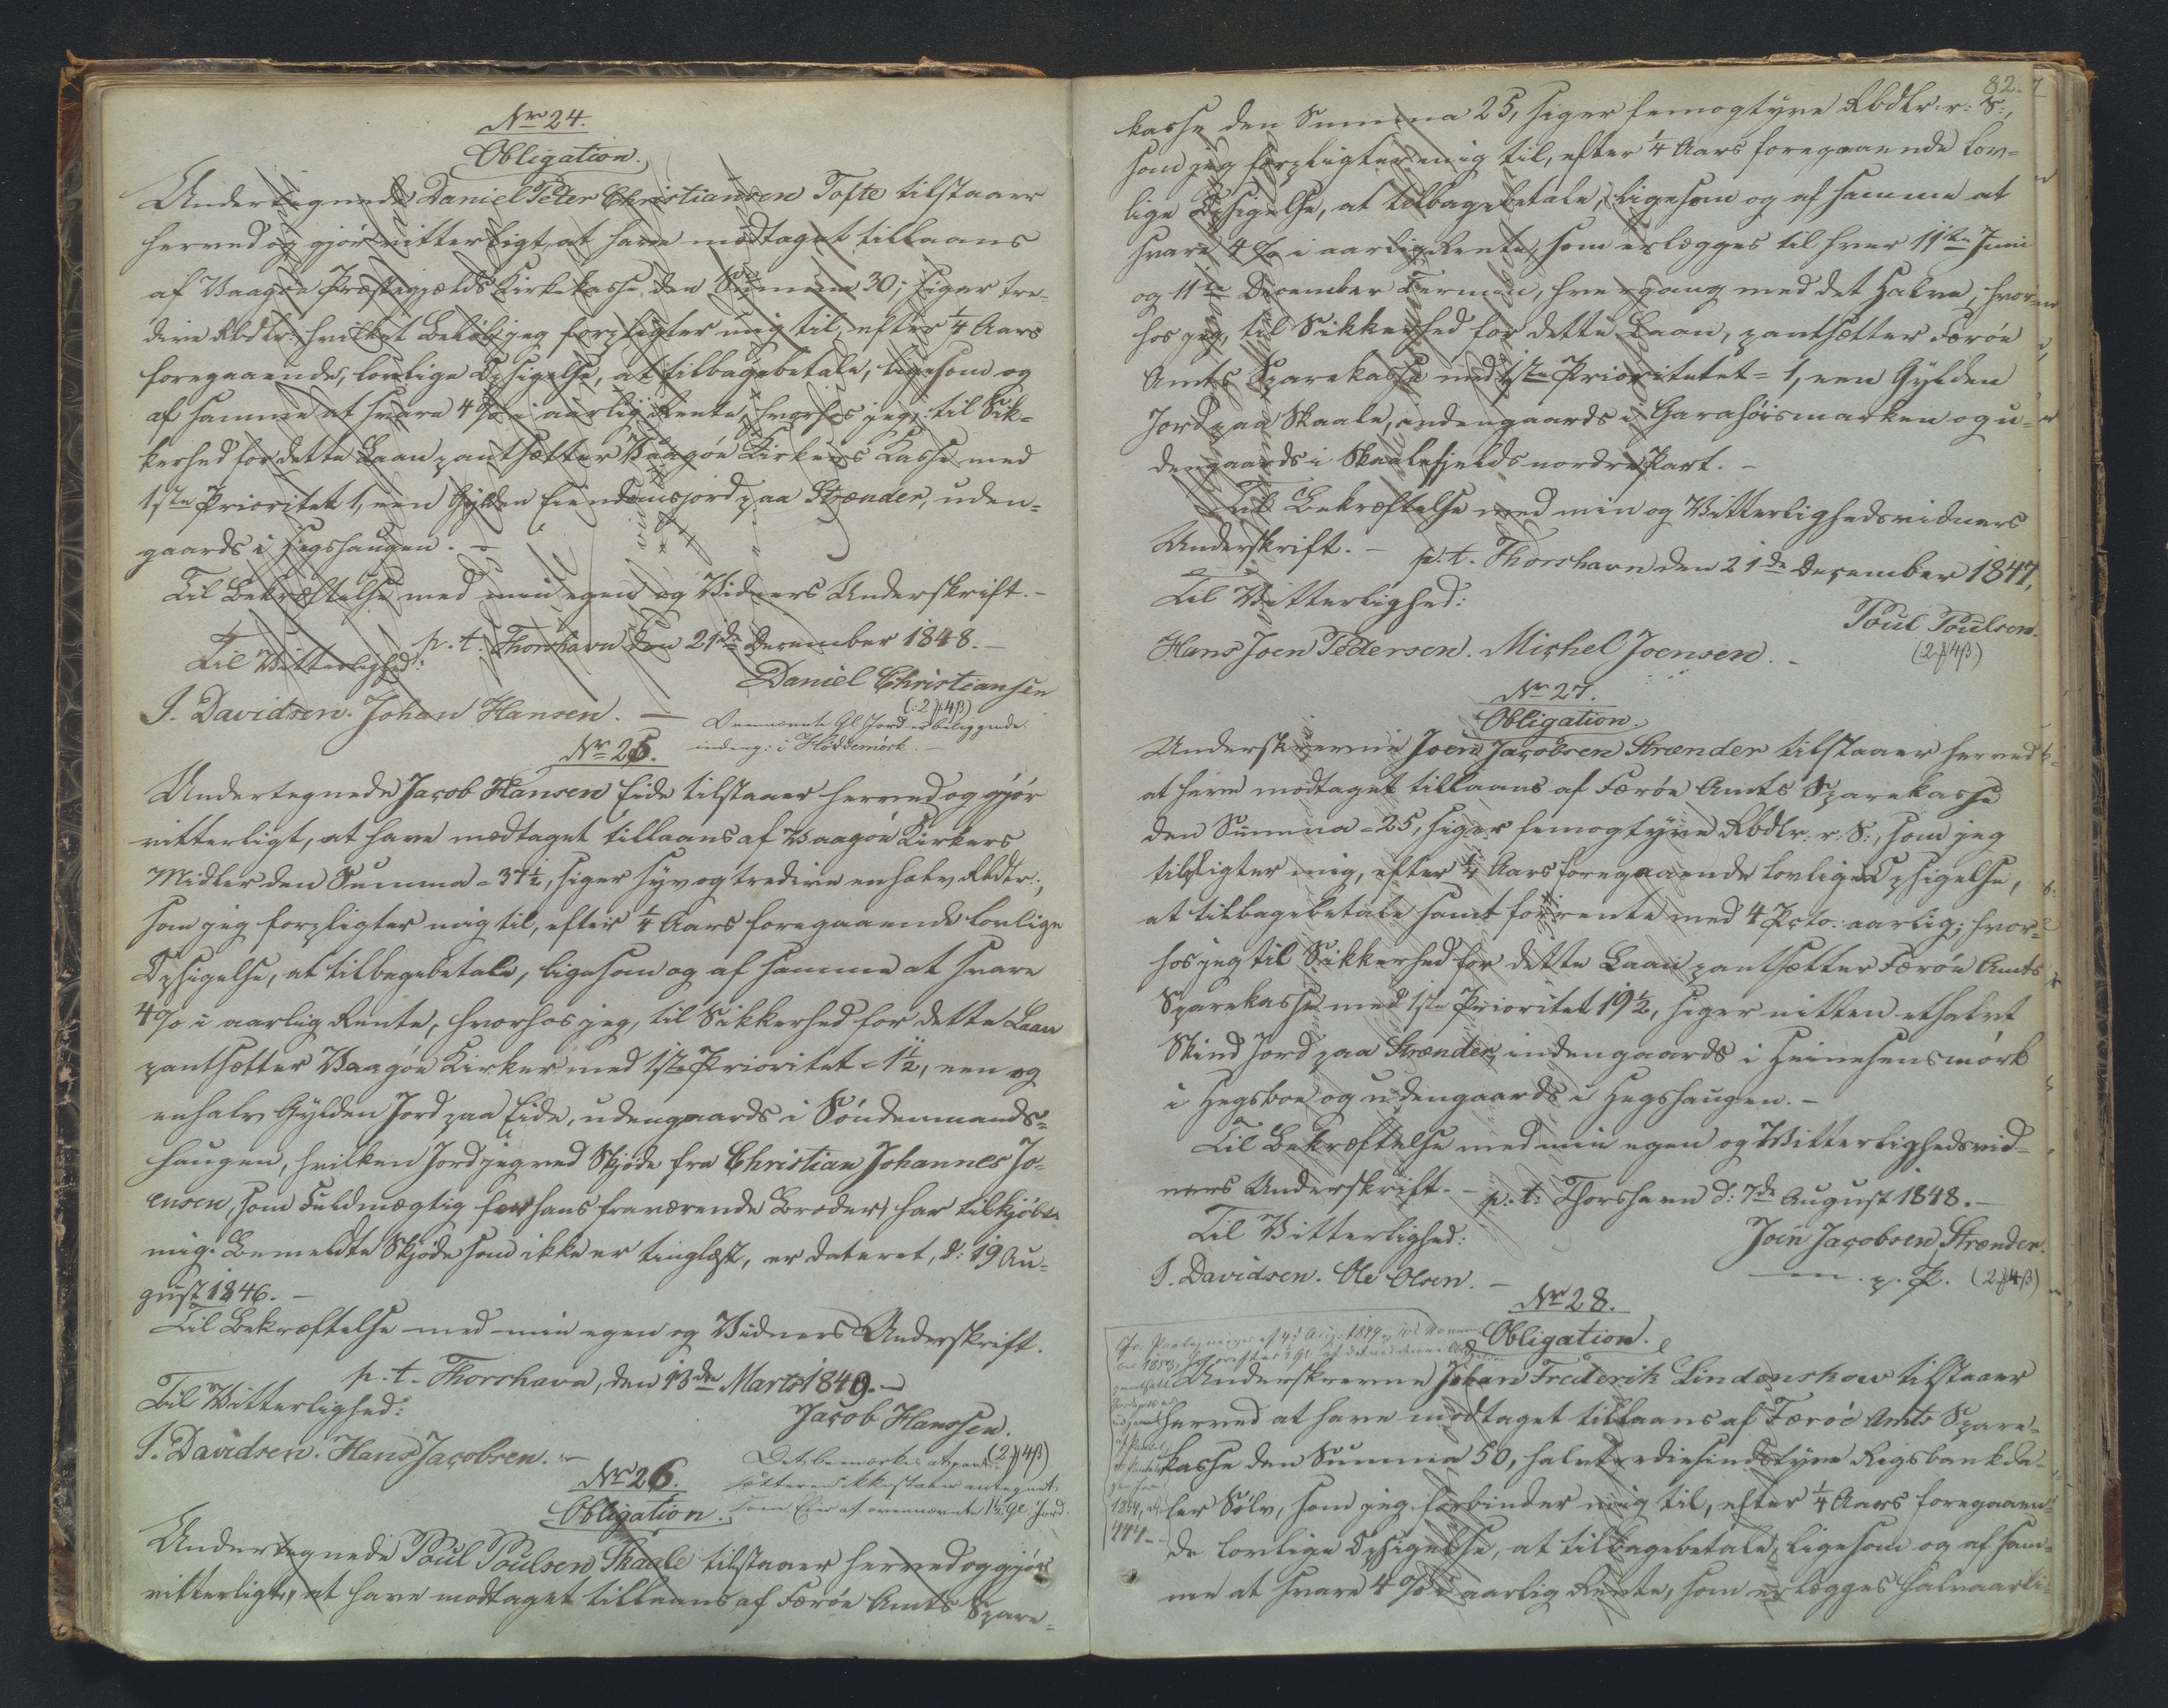 Nr 24.
Obligation.
Undertegnede Daniel Peter Christiansen Tofte tilstaaer
herved og gjør vitterligt, at have modtaget tillaans
af Vaagøe Præstegjælds Kirkekasse den Summa 30, siger tre-
dive Rbdlr: hvilket Beløb jeg forpligter mig til, efter 1/4 Aars
foregaaende, lovlige Opsigelse, at tilbagebetale, ligesom og
af samme at svare 4 % i aarlig Rente, hvorhos jeg, til Sik-
kerhed for dette Laan pantsætter Vaagøe Kirkers Kasse med
1ste Prioritet 1, een Gylden Eiendomsjord paa Strænder, uden-
gaards i Hegshaugen. -
Til Bekræftelse med min egen og Vidners Underskrift. -
p. t. Thorshavn den 21de December 1848. -
Til Vitterlighed:
Daniel Christiansen
J. Davidsen. Johan Hansen. -
(: 2 ƒ 4 β)
Ovennævnte Gl Jord er beliggende
indeng: i
Nr 25.
Undertegnede Jacob Hansen Eide tilstaaer herved og gjør
vitterligt, at have modtaget tillaans af Vaagøe Kirkers
Midler den Summa = 37½, siger syv og tredive enhalv Rbdlr:,
som jeg forpligter mig til, efter 1/4 Aars foregaaende lovlige
Opsigelse, at tilbagebetale, ligesom og af samme at svare
4% i aarlig Rente, hvorhos jeg, til Sikkerhed for dette Laan
pantsætter Vaagøe Kirker med 1ste Prioritet = 1½, een og
enhalv Gylden Jord paa Eide, udengaards i Søndenmands-
haugen, hvilken Jord jeg ved Skjøde fra Christian Johannes Jo-
ensen, som Fuldmægtig for hans fraværende Broder, har tilkjøbt
mig. Bemeldte Skjøde som ikke er tinglæst, er dateret, d: 19 Au-
gust 1846. -
Til Bekræftelse med min egen og Vidners Underskrift.
p. t. Thorshavn, den 13de Marts 1849. -
Til Vitterlighed:
Jacob Hanssen.
J. Davidsen. Hans Jacobsen. -
(2 ƒ 4 β)
Det bemærkes at pant-
sætteren ikke staaer antegnet
som Eier af ovennævnte 1½ Gl: Jord.
Nr 26.
Obligation.
Undertegnede Poul Poulsen Skaale tilstaaer herved og gjør
vitterligt, at have modtaget tillaans af Færøe Amts Spare-
82.
kasse den Summa 25, siger femogtyve Rbdlr: r: S:,
som jeg forpligter mig til, efter 1/4 Aars foregaaende lov-
lige Opsigelse, at tilbagebetale, ligesom og af samme at
svare 4 % i aarlig Rente, som erlægges til hver 11te Juni
og 11te December Termin, hvergang med det Halve, hvor-
hos jeg, til Sikkerhed for dette Laan, pantsætter Færøe
Amts Sparekasse med 1ste Prioritetet = 1, een Gylden
Jord paa Skaale, indengaards i Garahøismarken og u-
dengaards i Skaalefjelds nordre Part. -
Til Bekræftelse med min og Vitterlighedsvidners
Underskrift. -
p. t. Thorshavn den 21de December 1847,
Til Vitterlighed:
Poul Poulsen.
Hans Joen Pedersen. Michel Joensen. -
(: 2 ƒ 4 β)
Nr 27.
Obligation.
Underskrevne Joen Jacobsen Strænder tilstaaer herved
at have modtaget tillaans af Færøe Amts Sparekasse
den Summa = 25, siger femogtyve Rbdlr: r: S:, som jeg
tilpligter mig, efter 1/4 Aars foregaaende lovlige Opsigelse,
at tilbagebetale samt forrente med 4 Pcto: aarlig; hvor-
hos jeg til Sikkerhed for dette Laan pantsætter Færøe Amts
Sparekasse med 1ste Prioritet 19½, siger nitten ethalvt
Skind Jord paa Strænder, indengaards i Heinesensmørk
i Hegsboe og udengaards i Hegshaugen. -
Til Bekræftelse med min egen og Vitterlighedsvid-
ners Underskrift. -
p. t. Thorshavn d: 7de August 1848. -
Til Vitterlighed:
Joen Jacobsen Strænder.
J. Davidsen. Ole Olsen. -
m. p. P. (2 ƒ 4 β)
Nr 28.
Obligation.
Underskrevne Johan Frederik Lindenskow tilstaaer
herved at have modtaget tillaans af Færøe Amts Spare-
kasse den Summa 50, halvtrediesindstyve Rigsbankda-
ler Sølv, som jeg forbinder mig til, efter 1/4 Aars foregaaen-
de lovlige Opsigelse, at tilbagebetale, ligesom og af sam-
me at svare 4 % i aarlig Rente, som erlægges halvaarli-